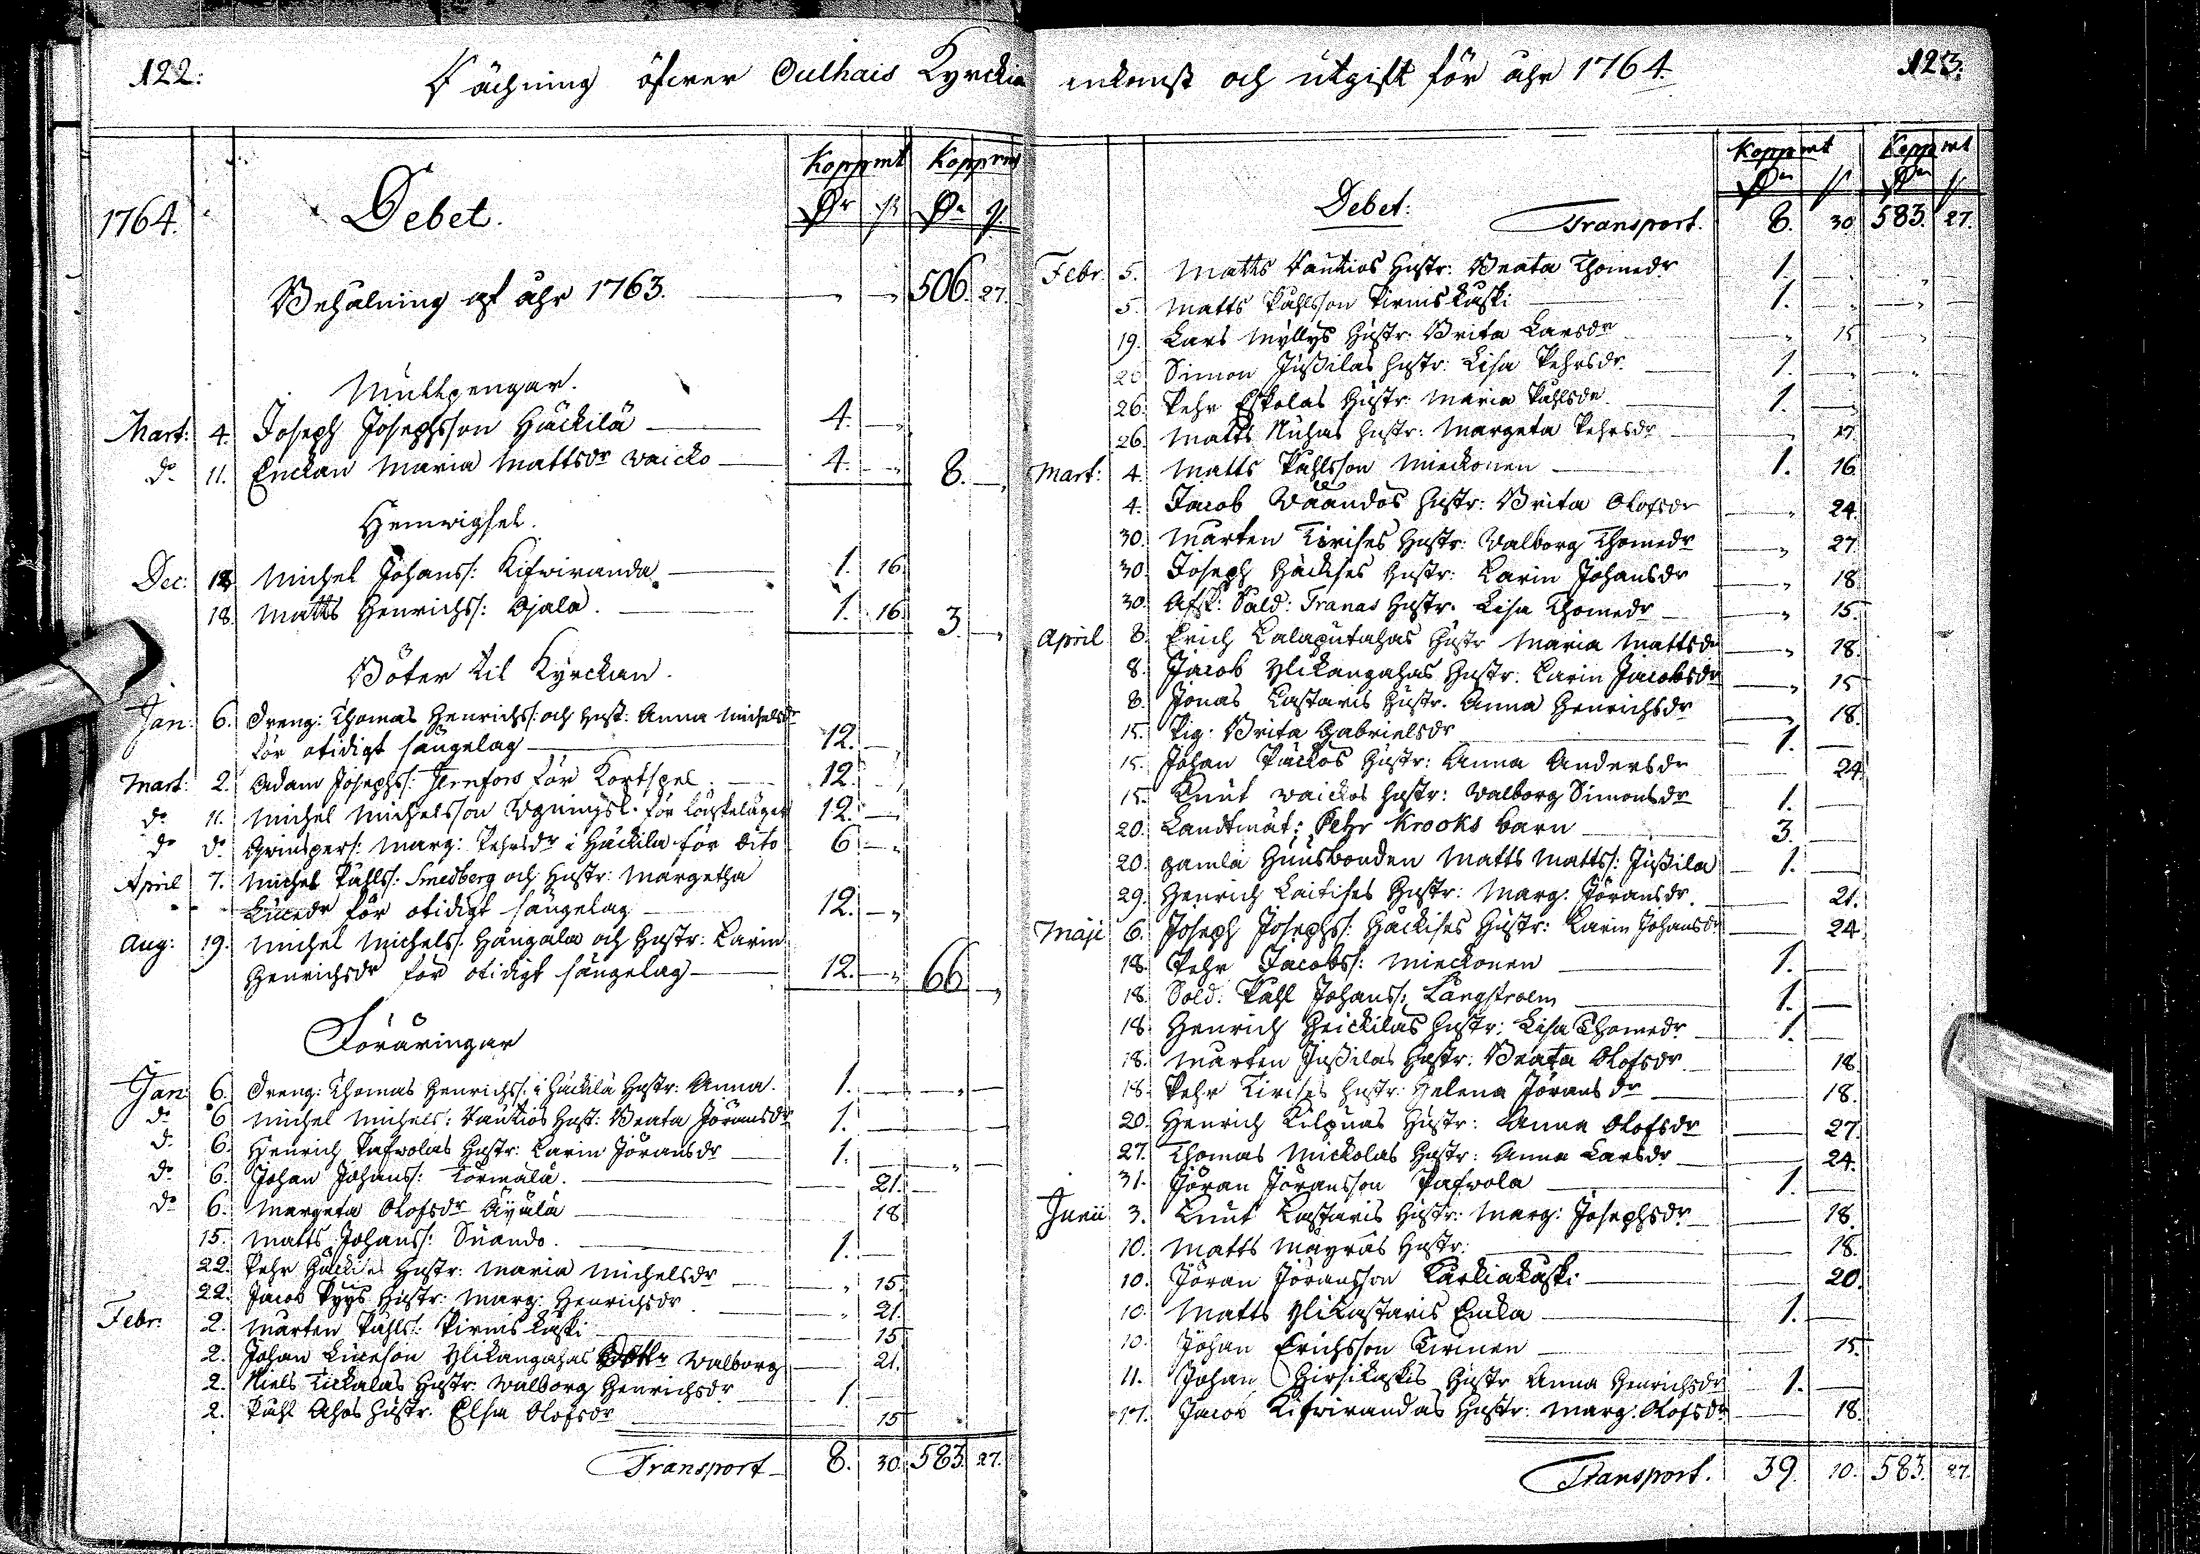 122.
Räckning öfwer Oulhais Kyrckia
Koppmt Koppmt
1764. Debet. Dr s:r Dr s:r
Behålning af åhr 1763. — — 506. 27.
Mullpengar.
Mart: 4. Joseph Josephsson Häckilä — 4. —
do 11. Enckan Maria Mattsdr Waicko — 4. — 8. —
Hemwigsel.
Dec: 18. Michel Johanss: Kifwiranda — 1. 16.
18. Matts Henrichss: Ojala. — 1. 16. 3. —
Böter til Kyrckan.
Jan: 6. Dreng: Thomas Henrichss: och Hust: Anna Michelsdr
för otidigt sängelag — 12. —
Mart: 2. Adam Josephs: Jernfors för Kortspel. — 12. —
do 11. Michel Michelsson för Löskeläger 12. —
do do Marg: Pehrsdr i Häckilä för dito 6 —
April 7. Michel Påhlss: Smedberg och Hustr: Margetha
Lucedr för otidigt sängelag — 12. —
Aug: 19. Michel Michels: Hångala och Hustr: Karin
Henrichsdr för otidigt sängelag — 12. — 66 —
Föräringar
Jan: 6. Dreng: Thomas Henrichss: i Häckilä Hustr: Anna. 1. —
do 6 Michel Michels: Rautios Hust: Beata Jöransdr 1. —
d. 6. Henrich Pafwolas Hustr: Karin Jöransdr — 1. —
do 6. Johan Johanss: Kormala. — 21.
do 6. Margeta Olofsdr Äyälä — 18
15. Matts Johanss: Suando. — 1. —
22. Pehr Häckises Hustr: Maria Michelsdr — 15.
22. Jacob Pyys Hustr: Marg: Henrichsdr — 21.
Febr: 2. Mårten Påhlss: Kirmiskaski — 15
2. Johan Luceson Ylikangahas dottr Walborg — 21.
2. Niels Tickalas Hustr: Walborg Henrichsdr — 1. —
2. Påhl Ahos Hustr: Elsa Olofsdr — 15
Transport — 8. 30. 583. 27.
inkomst och utgift för åhr 1764.
123.
Koppmt Koppmt
Debet: Dr s:r Dr s:r
Transport. 8. 30 583. 27.
Febr. 5. Matts Rautios Hustr: Beata Thomedr 1.
5. Matts Påhlsson Kirmiskaski — 1.
19. Lars Myllys Hustr: Brita Larsdr — 15
20 Simon Jussilas Hustr: Lisa Pehrsdr. — 1.
26. Pehr Eskolas Hustr: Maria Påhlsdr. — 1. —
26. Matts Nuhas Hustr: Margeta Pehrsdr — 27
Mart: 4. Matts Påhlsson Mieckonen — 1. 16.
4. Jacob Wäändos Hustr: Brita Olofsdr — 24.
30. Mårten Kirises Hustr: Walborg Thomedr — 27
30. Joseph Häckises Hustr: Karin Johansdr — 18
30. Afsk: Sold: Tranas Hustr. Lisa Thomedr — 15.
April 8. Erich Kalaputahas Hustr Maria Mattsdr — 18.
8. Jacob Ylikangahas Hustr: Karin Jacobsdr — 15
8. Jonas Kastaris Hustr. Anna Henrichsdr — 18.
15. Pig: Brita Gabrielsdr — 1. —
15. Johan Packos Hustr: Anna Andersdr — 24.
15. Knut Waickos Hustr: Walborg Simonsdr — 1. —
20. Landtmät: Pehr Krooks barn — 3. —
20. gamla Huusbonden Matts Matts: Jussila — 1. —
29. Henrich Laitises Hustr: Marg: Jöransdr. — 21.
Maji 6. Joseph Josephss: Häckises Hustr: Karin Johansdr — 24
18. Pehr Jacobss: Mieckonen — 1. —
18. Sold: Påhl Johanss: Långström — 1. —
18. Henrich Heickilas Hustr: Lisa Thomedr — 1. —
18. Mårten Jussilas Hustr: Beata Olofsdr — 18
18. Pehr Kirises Hustr: Helena Jöransdr — 18.
20. Henrich Kilpuas Hustr: Anna Olofsdr — 27.
27. Thomas Mickolas Hustr: Anna Larsdr — 24.
31. Jöran Jöransson Pafwola — 1. —
Junii 3. Knut Kastaris Hustr: Marg: Josephsdr — 18.
10. Matts Mäyräs Hustr: — 18.
10. Jöran Jöransson Karkiakaski — 20.
10. Matts Ylikastaris Encka — 1. —
10. Johan Erichsson Kirinen — 15.
11. Johan Hirsikaskis Hustr Anna Henrichsdr — 1. —
17. Jacob Kifwirandas Hustr: Marg. Olofsdr — 18.
Transport. 39. 10. 583. 27.